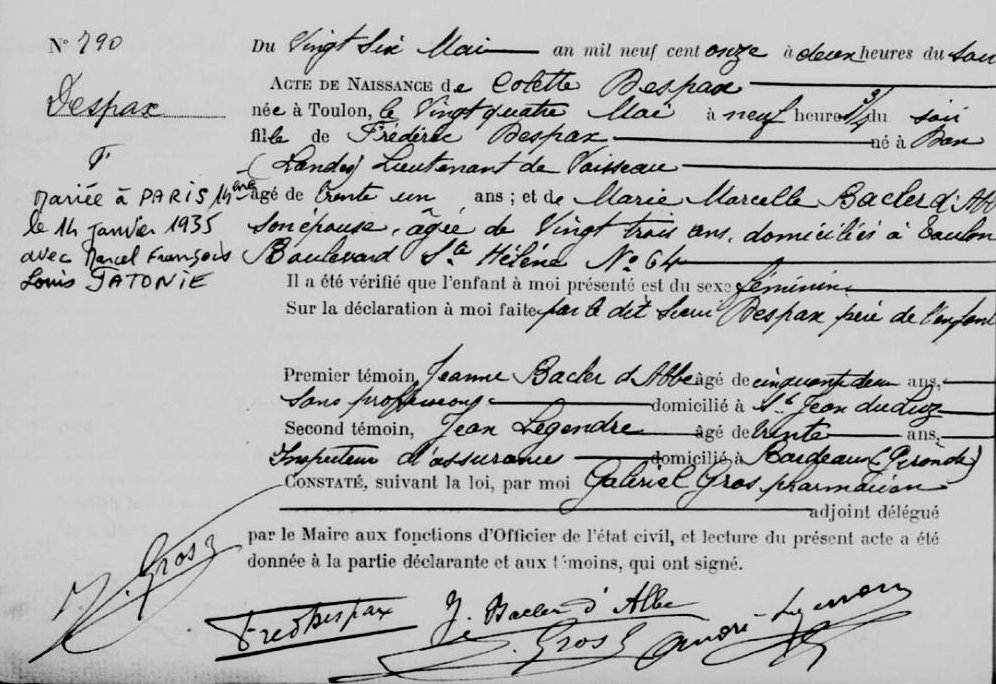 N° 790
Du Vingt Six Mai an mil neuf cent onze à deux heures du soir
ACTE DE NAISSANCE de Colette Despax
Despax
née à Toulon, le Vingt quatre Mai à neuf heures 3/4 du soir
fille de Frédéric Despax né à Dax
F
(Landes) Lieutenant de Vaisseau
Mariée à PARIS
âgé de trente un ans ; et de Marie Marcelle Bacler d'Albe
le 14 janvier 1935
son épouse, âgée de Vingt trois ans, domiciliés à Toulon
avec Marcel François
Boulevard Ste Hélène No 64
Louis TATONIE
Il a été vérifié que l'enfant à moi présenté est du sexe féminin.
Sur la déclaration à moi faite par le dit Sieur Despax père de l'enfant
Premier témoin, Jeanne Bacler d'Albe âgé de cinquante deux ans,
sans profession domicilié à St Jean du Luz
Second témoin, Jean Legendre âgé de trente ans,
Inspecteur d'assurances domicilié à Bordeaux (Gironde)
CONSTATÉ, suivant la loi, par moi Gabriel Gros pharmacien
adjoint délégué
par le Maire aux fonctions d'Officier de l'état civil, et lecture du présent acte a été
donnée à la partie déclarante et aux témoins, qui ont signé.
Gros
Fred Despax
J. Bacler d'Albe
Gros